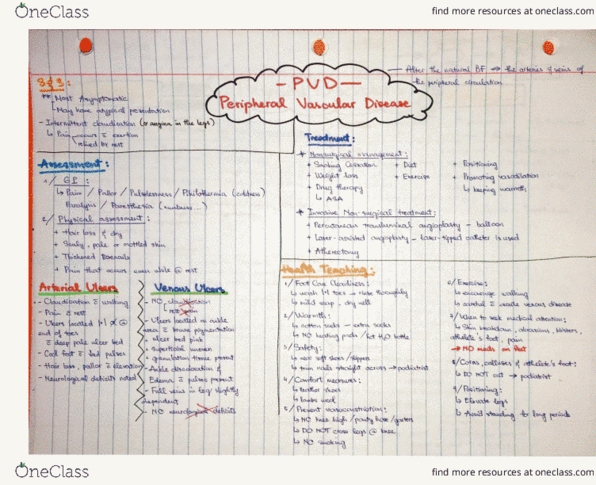 OneClass
find more resources at oneclass.com
Alter the natural BF → the arteries & veins of
the peripheral circulation
- PVD -
Peripheral Vascular Disease
S&S:
** Most Asymptomatic
May have atypical presentation
- Intermittent claudication (or angina in the legs)
↳ Pain occurs c̄ exertion
relived by rest
Assessment:
1/ GI:
↳ Pain / Pallor / Pulselessness / Poikilothermia (coldness)
Paralysis / Paresthesia (numbness...)
2/ Physical assessment:
+ Hair loss & dry
+ Scaly, pale or mottled skin
+ Thickened toenails
+ Pain that occurs even while @ rest
Arterial Ulcers
- Claudication c̄ walking
- Pain @ rest
- Ulcers located
end of toes
c̄ deep pale ulcer bed
- Cool foot c̄ pulses
- Hair loss, pallor c̄ elevation
- Neurological deficits noted
Venous Ulcers
- NO claudication
rest pain
- Ulcers located @ ankle
area c̄ brown pigmentation
+ ulcer bed pink
+ superficial uneven
+ granulation tissue present
- Ankle discoloration &
Edema c̄ pulses present
- Full veins in leg slightly
dependent
- NO neurological deficits
Treatment:
* Nonsurgical management:
+ Smoking Cessation
+ Weight loss
+ Drug therapy
↳ ASA
+ Diet
+ Exercise
+ Positioning
+ Promoting vasodilation
↳ keeping warmth
* Invasive Non-surgical treatment:
+ Percutaneous transluminal angioplasty - balloon
+ Laser-assisted angioplasty - laser-tipped catheter is used
+ Atherectomy
Health Teaching:
1/ Foot Care Cleanliness:
↳ wash b/t toes & rinse thoroughly
↳ mild soap, dry well
2/ Warmth:
↳ cotton socks - extra socks
↳ NO heating pads / hot H2O bottle
3/ Safety:
↳ soft shoes/slippers
↳ trim nails straight across → podiatrist
4/ Comfort measures:
↳ leather shoes
↳ lambs wool
5/ Prevent vasoconstriction:
↳ NO knee high / panty hose / garters
↳ DO NOT cross legs @ knee
↳ NO smoking
6/ Exercise:
↳ encourage walking
↳ careful c̄ acute venous disease
7/ When to seek medical attention:
↳ Skin breakdown, abrasions, blisters,
athlete's foot, pain
→ NO meds on feet
8/ Corns, calluses & athlete's foot:
↳ DO NOT cut → podiatrist
9/ Positioning:
↳ Elevate legs
↳ Avoid standing for long periods
OneClass
find more resources at oneclass.com